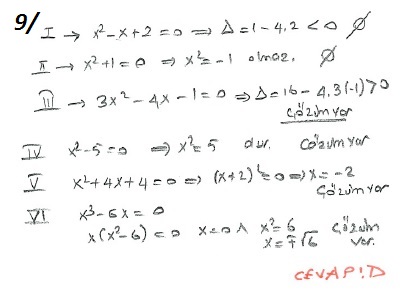 9/ I → x²-x+2=0 ⇒ Δ=1-4.2<0 ∅
II → x²+1=0 ⇒ x²=-1 olmaz. ∅
III → 3x²-4x-1=0 ⇒ Δ=16-4.3(-1)>0
Çözüm var
IV x²-5=0 ⇒ x²=5 dur. Çözüm var
V x²+4x+4=0 ⇒ (x+2)²=0 ⇒ x=-2
Çözüm var
VI x³-6x=0
x(x²-6)=0 x=0 ∧ x²=6 Çözüm
x=∓√6 var.
CEVAP:D